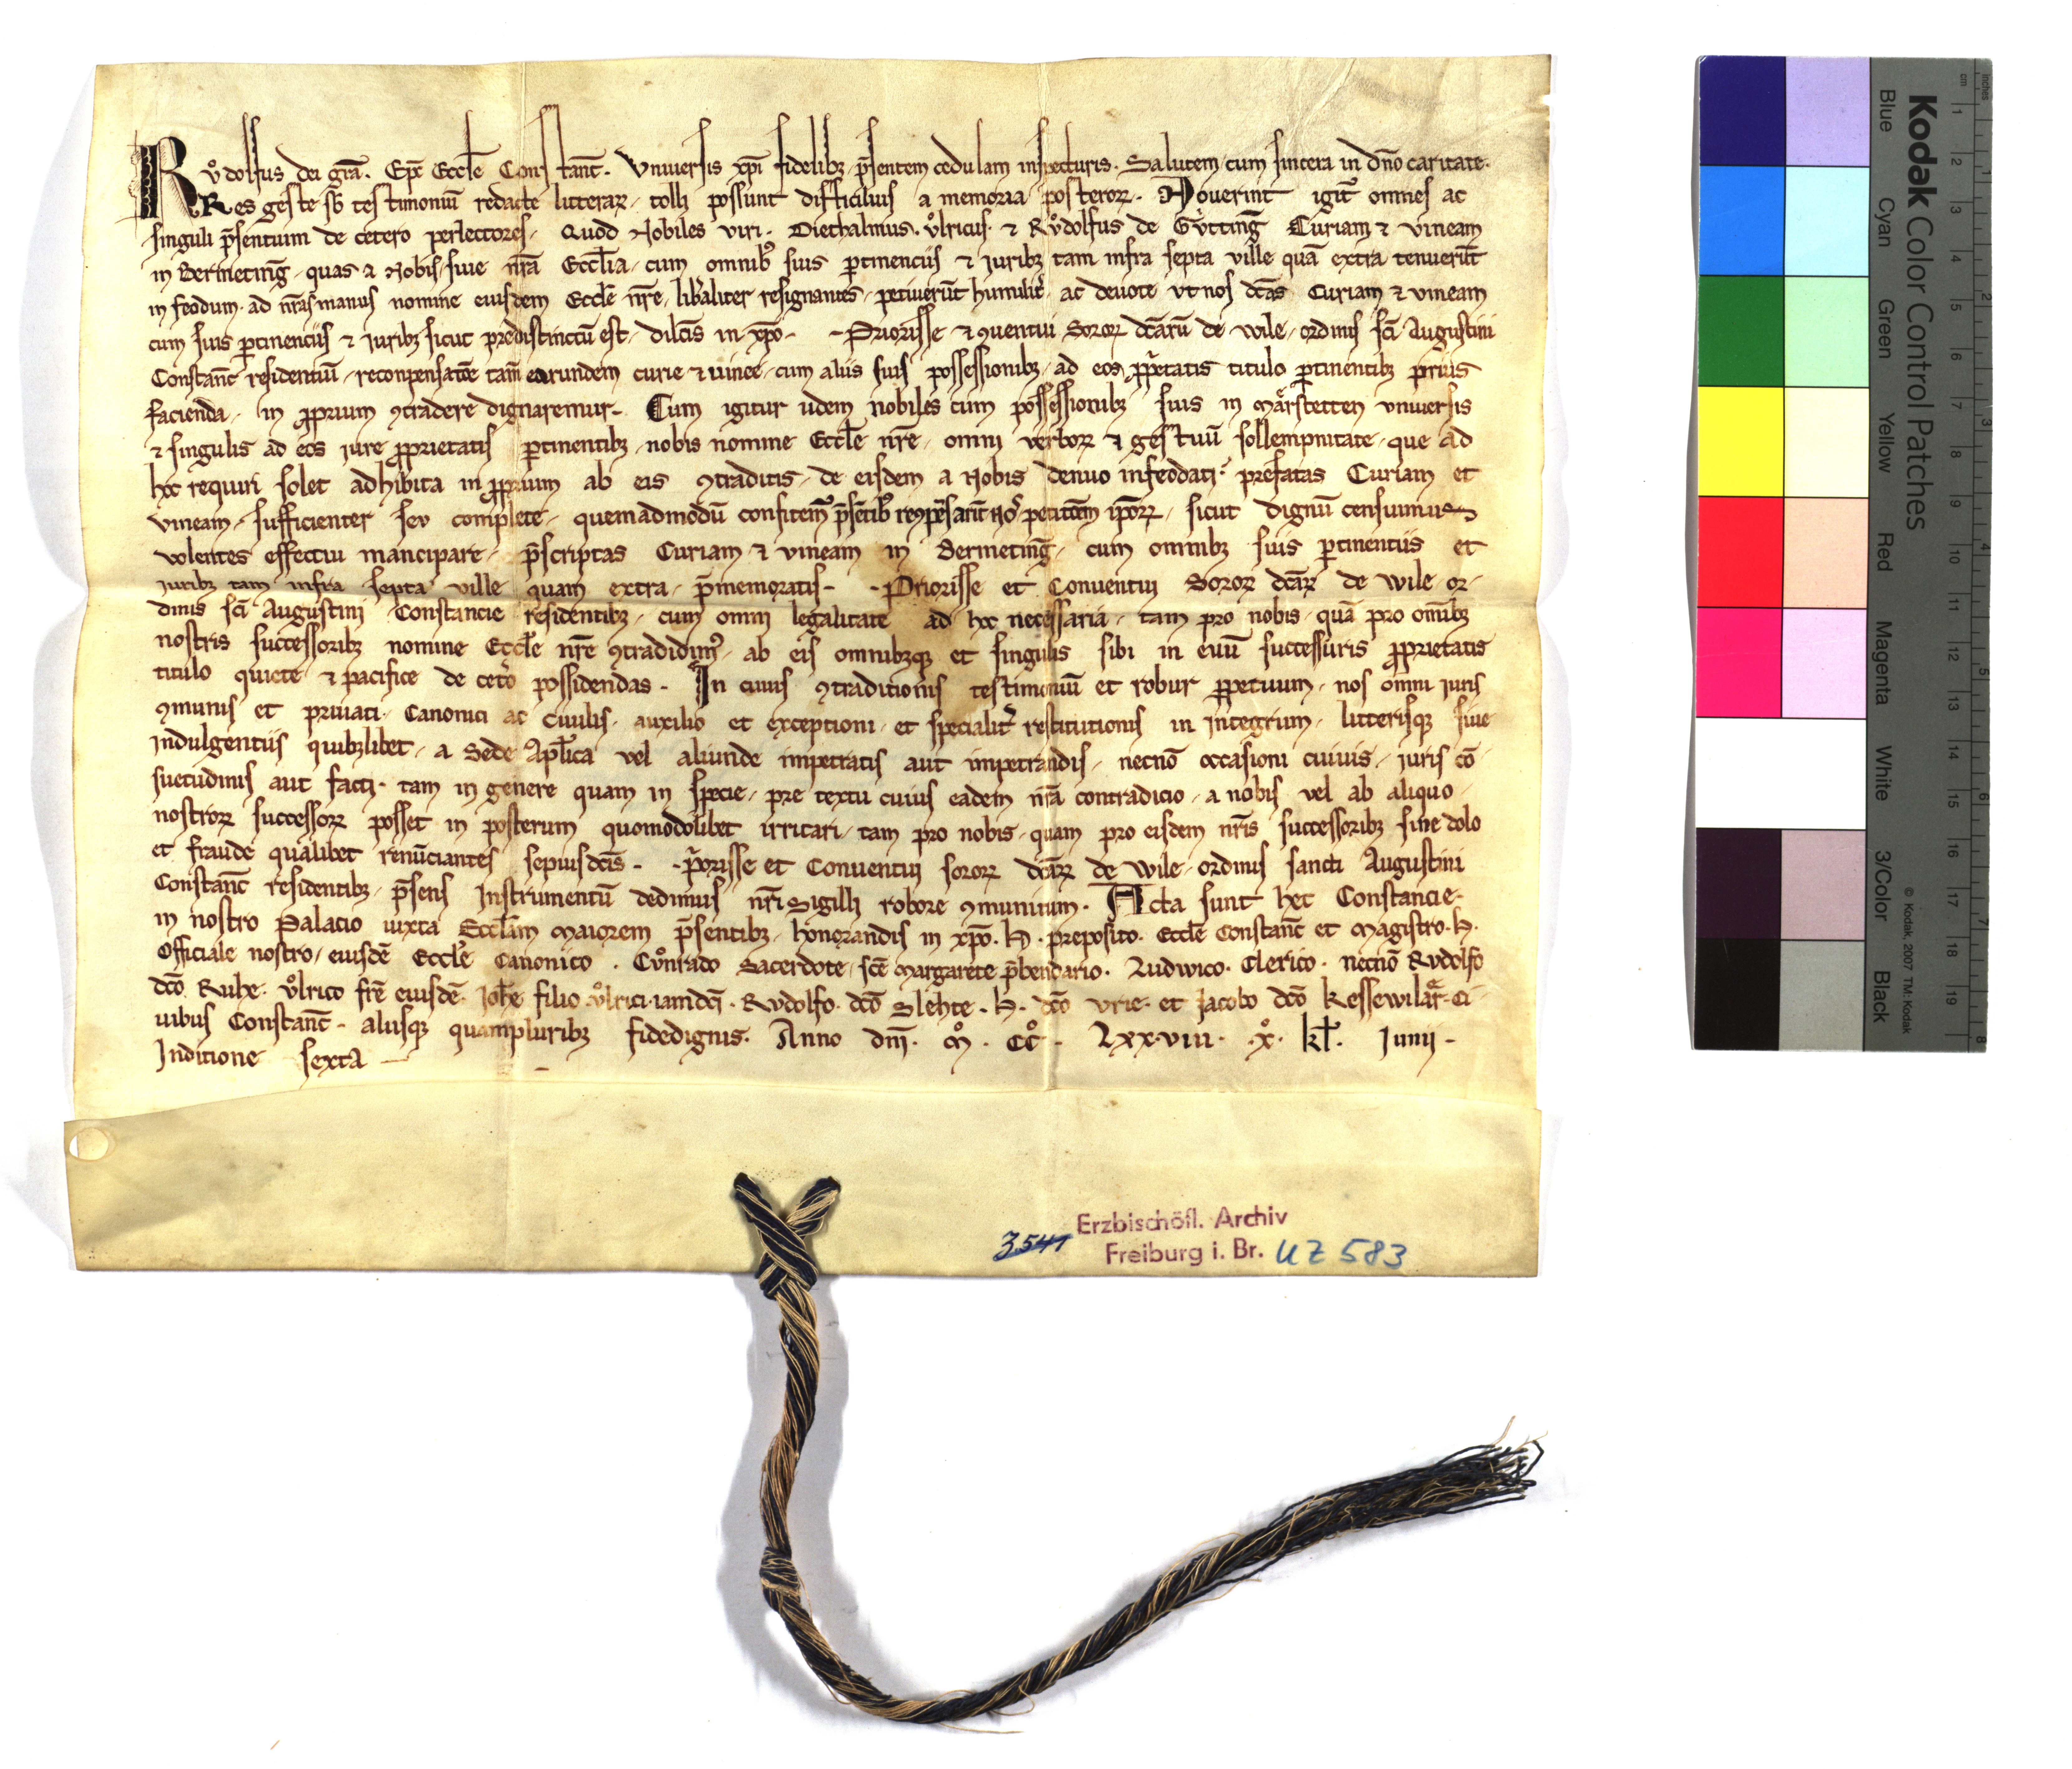 Růdolfus dei gr̄a. Ep̄c Eccl̄e Constanc̄. Vniuersis xp̄i fidelibꝫ p̄sentem cedulam inspecturis. Salutem cum sincera in dn̄o caritate.
Res geste sb̄ testimoniū redacte litteraꝝ, tolli possunt difficilius a memoria posteroꝝ. Nouerint igit̄ omnes ac
singuli p̄sentium de cetero perlectores, Quod Nobiles viri. Diethalmus. Vͦlricus. ⁊ Růdolfus de Gv̍ttinḡ Curiam ⁊ vineam
in Bermetinḡ, quas a Nobis, siue nr̄a Eccl̄ia, cum omnibꝰ suis ꝑtinenciis ⁊ iuribꝫ tam infra septa ville quā extra tenuerūt
in feodum, ad nr̄as manus nomine eiusdem Eccl̄e nr̄e, lib̄aliter resignantes, petiuerūt humilit̄ ac deuote vt nos dc̄as Curiam ⁊ vineam
cum suis ꝑtinenciis ⁊ iuribꝫ sicut predistinctū est, dilc̄is in xp̄o. - Priorisse ⁊ ꝯuentui Soroꝝ dc̄arū de Wile, ordinis sc̄i Augustini
Constanc̄ residentiū, reconpensatōe tam̄ earundem curie ⁊ uinee, cum aliis suis possessionibꝫ, ad eos ꝓp̄etatis titulo ꝑtinentibꝫ prius
facienda, in ꝓprium ꝯtradere dignaremur. Cum igitur iidem nobiles cum possessionibꝫ suis in Mārstetten vniuersis
⁊ singulis ad eos iure ꝓprietatis ꝑtinentibꝫ, nobis nomine Eccl̄e nr̄e, omni verboꝝ ⁊ gestuū sollempnitate, que ad
hoc requiri solet adhibita in ꝓprium ab eis ꝯtraditis, de eisdem a Nobis denuo infeodati, prefatas Curiam et
vineam, sufficienter sev complete, quemadmodū confitem̄ p̄sētibꝰ petitōem ip̄oꝝ, sicut dignū censuimus
volentes effectui mancipare, p̄scriptas Curiam ⁊ vineam in Bermetinḡ, cum omnibꝫ suis ꝑtinentiis et
iuribꝫ tam infra septa ville quam extra, p̄memoratis. - Priorisse et Conuentui Soroꝝ dc̄aꝝ de Wile or-
dinis sc̄i Augustini Constancie residentibꝫ, cum omni legalitate ad hoc necessaria, tam pro nobis, quā pro om̄ibꝫ
nostris successoribꝫ nomine Eccl̄e nr̄e ꝯtradidimꝰ, ab eis omnibꝫqꝫ et singulis sibi in euū successuris ꝓprietatis
titulo quiete ⁊ pacifice de cet̄o possidendas. In cuius ꝯtraditionis testimoniū et robur ꝑpetuum, nos omni iuris
ꝯmunis et priuati, Canonici ac ciuilis, auxilio et exceptioni, et specialit̄ restitutionis in integrum, litterisqꝫ siue
Indulgentiis quibꝫlibet, a Sede Apl̄ica vel aliunde impetratis aut impetrandis, necnō occasioni cuiuis, iuris cō-
suetudinis aut facti, tam in genere quam in specie, pre textu cuius eadem nr̄a contradicio, a nobis vel ab aliquo
nostroꝝ successoꝝ posset in posterum quomodolibet irritari, tam pro nobis, quam pro eisdem nr̄is successoribꝫ sine dolo
et fraude qualibet renūciantes sepiusdc̄is. - p̄orisse et Conuentui soroꝝ dc̄aꝝ de Wile, ordinis sancti Augustini
Constanc̄ residentibꝫ, p̄sens Instrumentū dedimus nr̄i Sigilli robore ꝯmunitum. Acta sunt hec Constancie.
in nostro Palacio iuxta Eccl̄iam Maiorem p̄sentibꝫ, honorandis in xp̄o. H. preposito. Eccl̄e Constanc̄ et Magistro. H.
Officiale nostro, eiusdē Eccl̄e Canonico. Cůnrado Sacerdote, sc̄e Margarete p̄bendario. Ludwico. Clerico. necnō Rvdolfo
dc̄o Ruhe. Vͦlrico fr̄e eiusdē. Joh̄e filio Vͦlrici iamdc̄i. Rvdolfo. dc̄o Slehte. H. dc̄o Vrie. et Jacobo dc̄o Kessewilār. Ci-
uibus Constanc̄. aliisqꝫ quampluribꝫ fidedignis. Anno dn̄i. Mͦ. CCͦ. Lxxviii. xͦ. kł. Junii.
Inditione sexta
3541
Erzbischöfl. Archiv
Freiburg i. Br. UZ 583
Kodak Color Control Patches
Blue Cyan Green Yellow Red Magenta White 3/Color Black
© Kodak, 2007 TM: Kodak
cm 1 2 3 4 5 6 7 8 9 10 11 12 13 14 15 16 17 18 19
inches 1 2 3 4 5 6 7 8